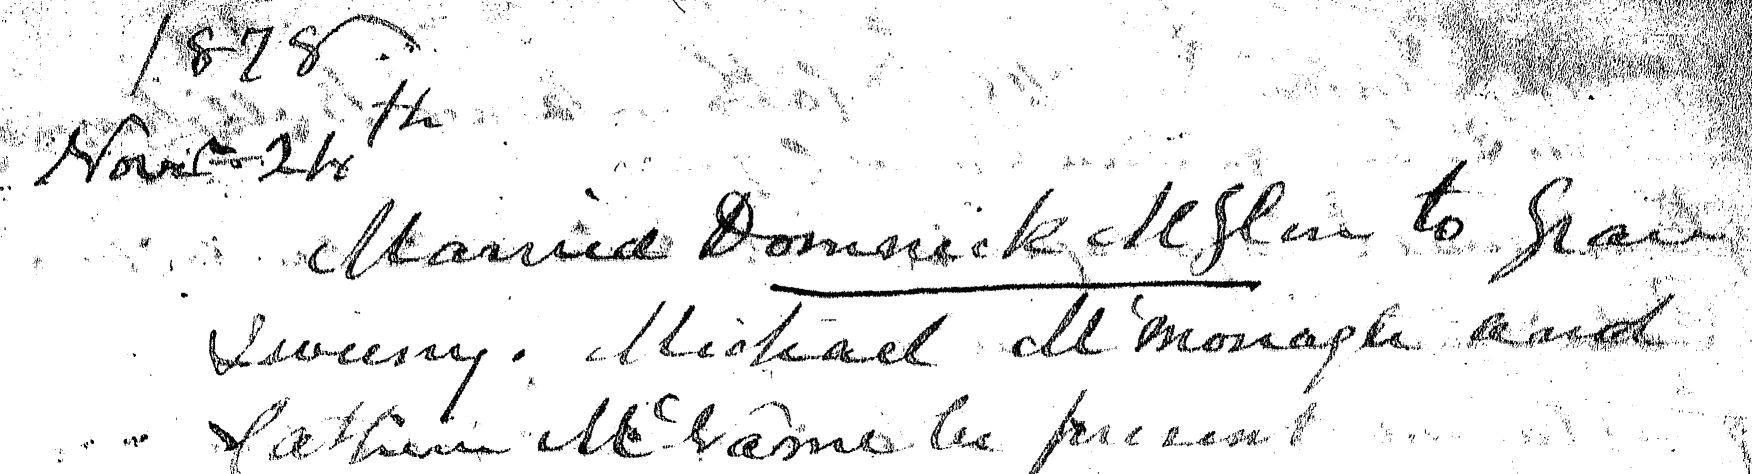 1878
Novr 24th
Married Domnick McGlin to Grace
Sweeny. Michael McMonagle and
Cathern McNamee present